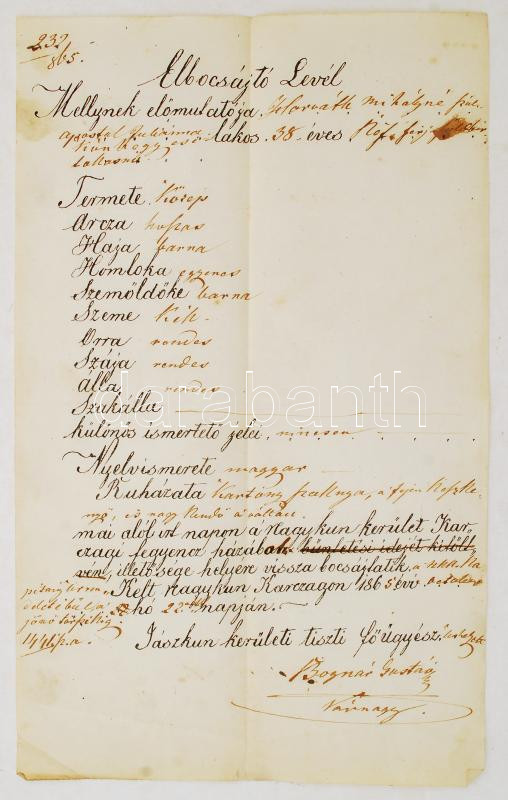 232
865.
Elbocsájtó Levél
Mellynek előmutatója Horváth Mihályné szül.
apostol Julianna lakos. 38 éves Ref.
Termete Közép
Arcza hoszas
Haja barna
Homloka egyenes
Szemöldöke barna
Szeme Kék
Orra rendes
Szája rendes
Álla rendes
Szakálla
különös ismertető jelei, nincsen
Nyelvismerete magyar
Ruházata Karton szoknya, a fején
és nagy Kendő
mai alól irt napon a Nagykun kerület Kar-
czagi fegyencz házából büntetési idejét kitölt
vén, illetősége helyére vissza bocsájtatik
Kelt Nagykun Karczagon 1865 évi
hó 22 napján.
Jászkun kerületi tiszti főügyész
Bognár Gusztáv
Várnagy.
darabanth